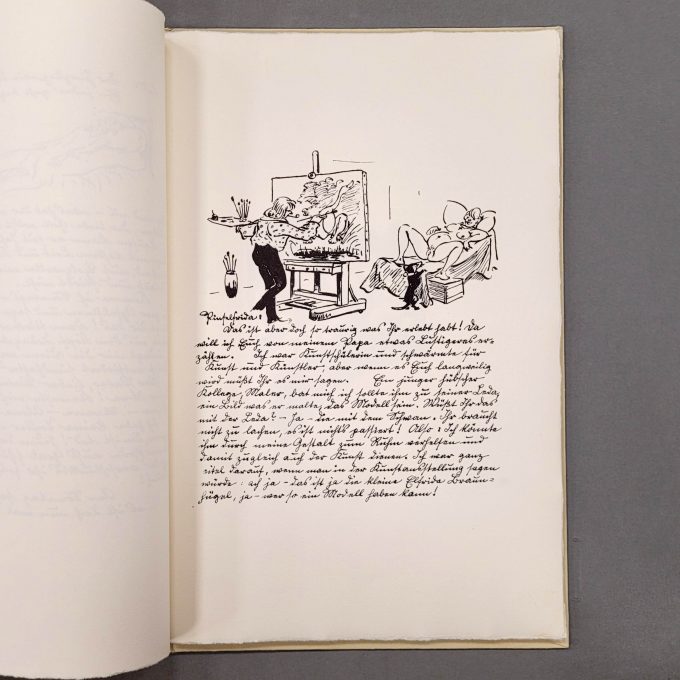 Pinselfrida.
Das ist aber doch so traurig was Ihr erlebt habt! Da
will ich Euch von meinem Papa etwas Lustigeres er-
zählen. Ich war Kunstschülerin und schwärmte für
Kunst und Künstler, aber wenn es Euch langweilig
wird müßt Ihr es mir sagen. Ein junger hübscher
Kollege, Maler, bat mich ich sollte ihm zu seiner Leda,
ein Bild was er malte, das Modell sein. Wußt Ihr das
mit der Leda? – Ja – die mit dem Schwan. Ihr braucht
nicht zu lachen, es ist nichts passiert! Also: Ich könnte
ihm durch meine Gestalt zum Ruhm verhelfen und
damit zugleich auch der Kunst dienen. Ich war ganz
eitel darauf, wenn man in der Kunstausstellung sagen
würde: ach ja – das ist ja die kleine Elfrida Braun-
hügel, ja – wer so ein Modell haben kann!